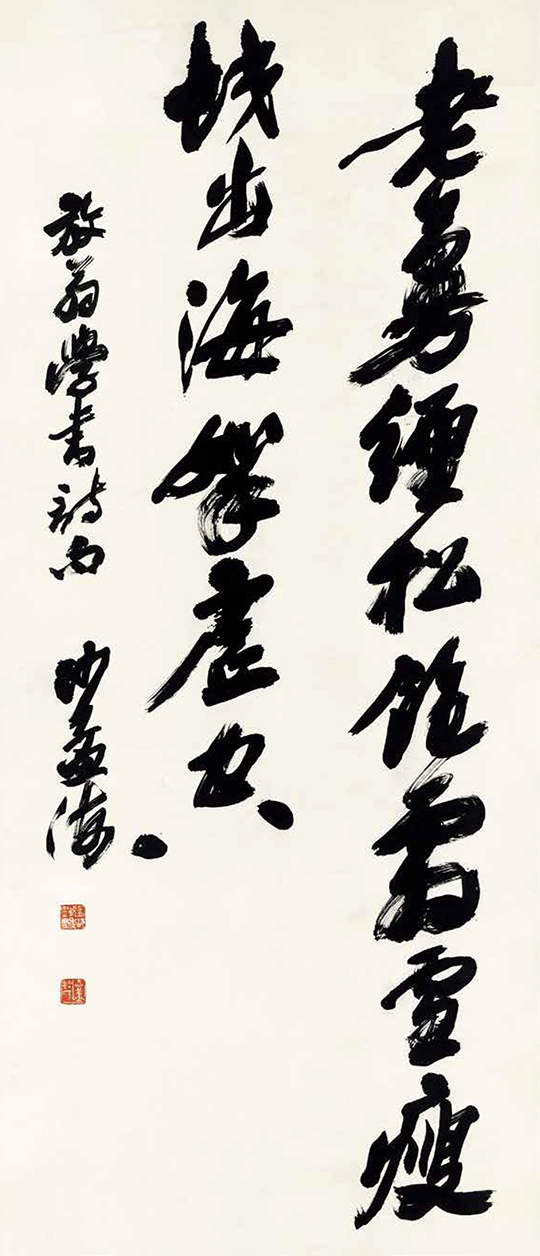 老蔓纏松飽霜雪瘦
蛟出海拏虛空
放翁學書詩句 沙孟海